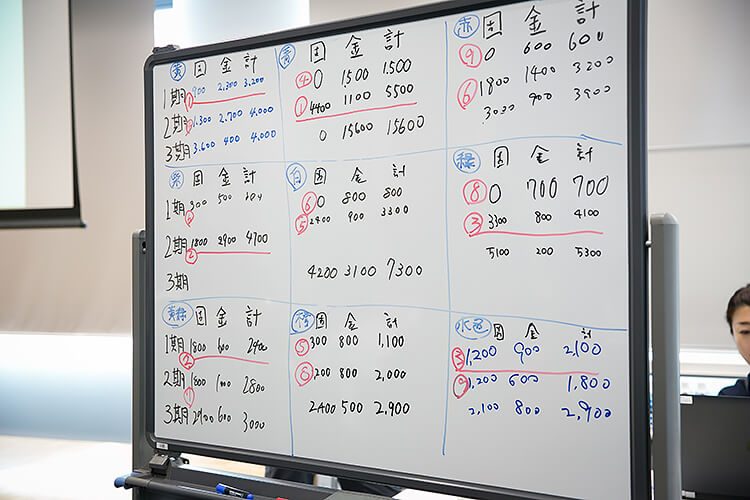 黄 固 金 計
1期 900 2,300 3,200
①
2期 1,300 2,700 4,000
3期 3,600 400 4,000
青 固 金 計
④ 0 1,500 1,500
① 4400 1100 5500
0 15600 15600
赤 固 金 計
⑨ 0 600 600
⑥ 1800 1400 3200
3000 900 3900
紫 固 金 計
1期 300 500
2期 1800 2900 4700
②
3期
白 固 金 計
⑥ 0 800 800
⑤ 2400 900 3300
4200 3100 7300
緑 固 金 計
⑧ 0 700 700
③ 3300 800 4100
5100 200 5300
黄緑 固 金 計
1期 1800 600 2400
②
2期 1800 1000 2800
①
3期 2400 600 3000
固 金 計
⑤ 300 800 1,100
⑧ 1,200 800 2,000
2,400 500 2,900
水色 固 金 計
③ 1,200 900 2,100
⑨ 1,200 600 1,800
2,100 800 2,900